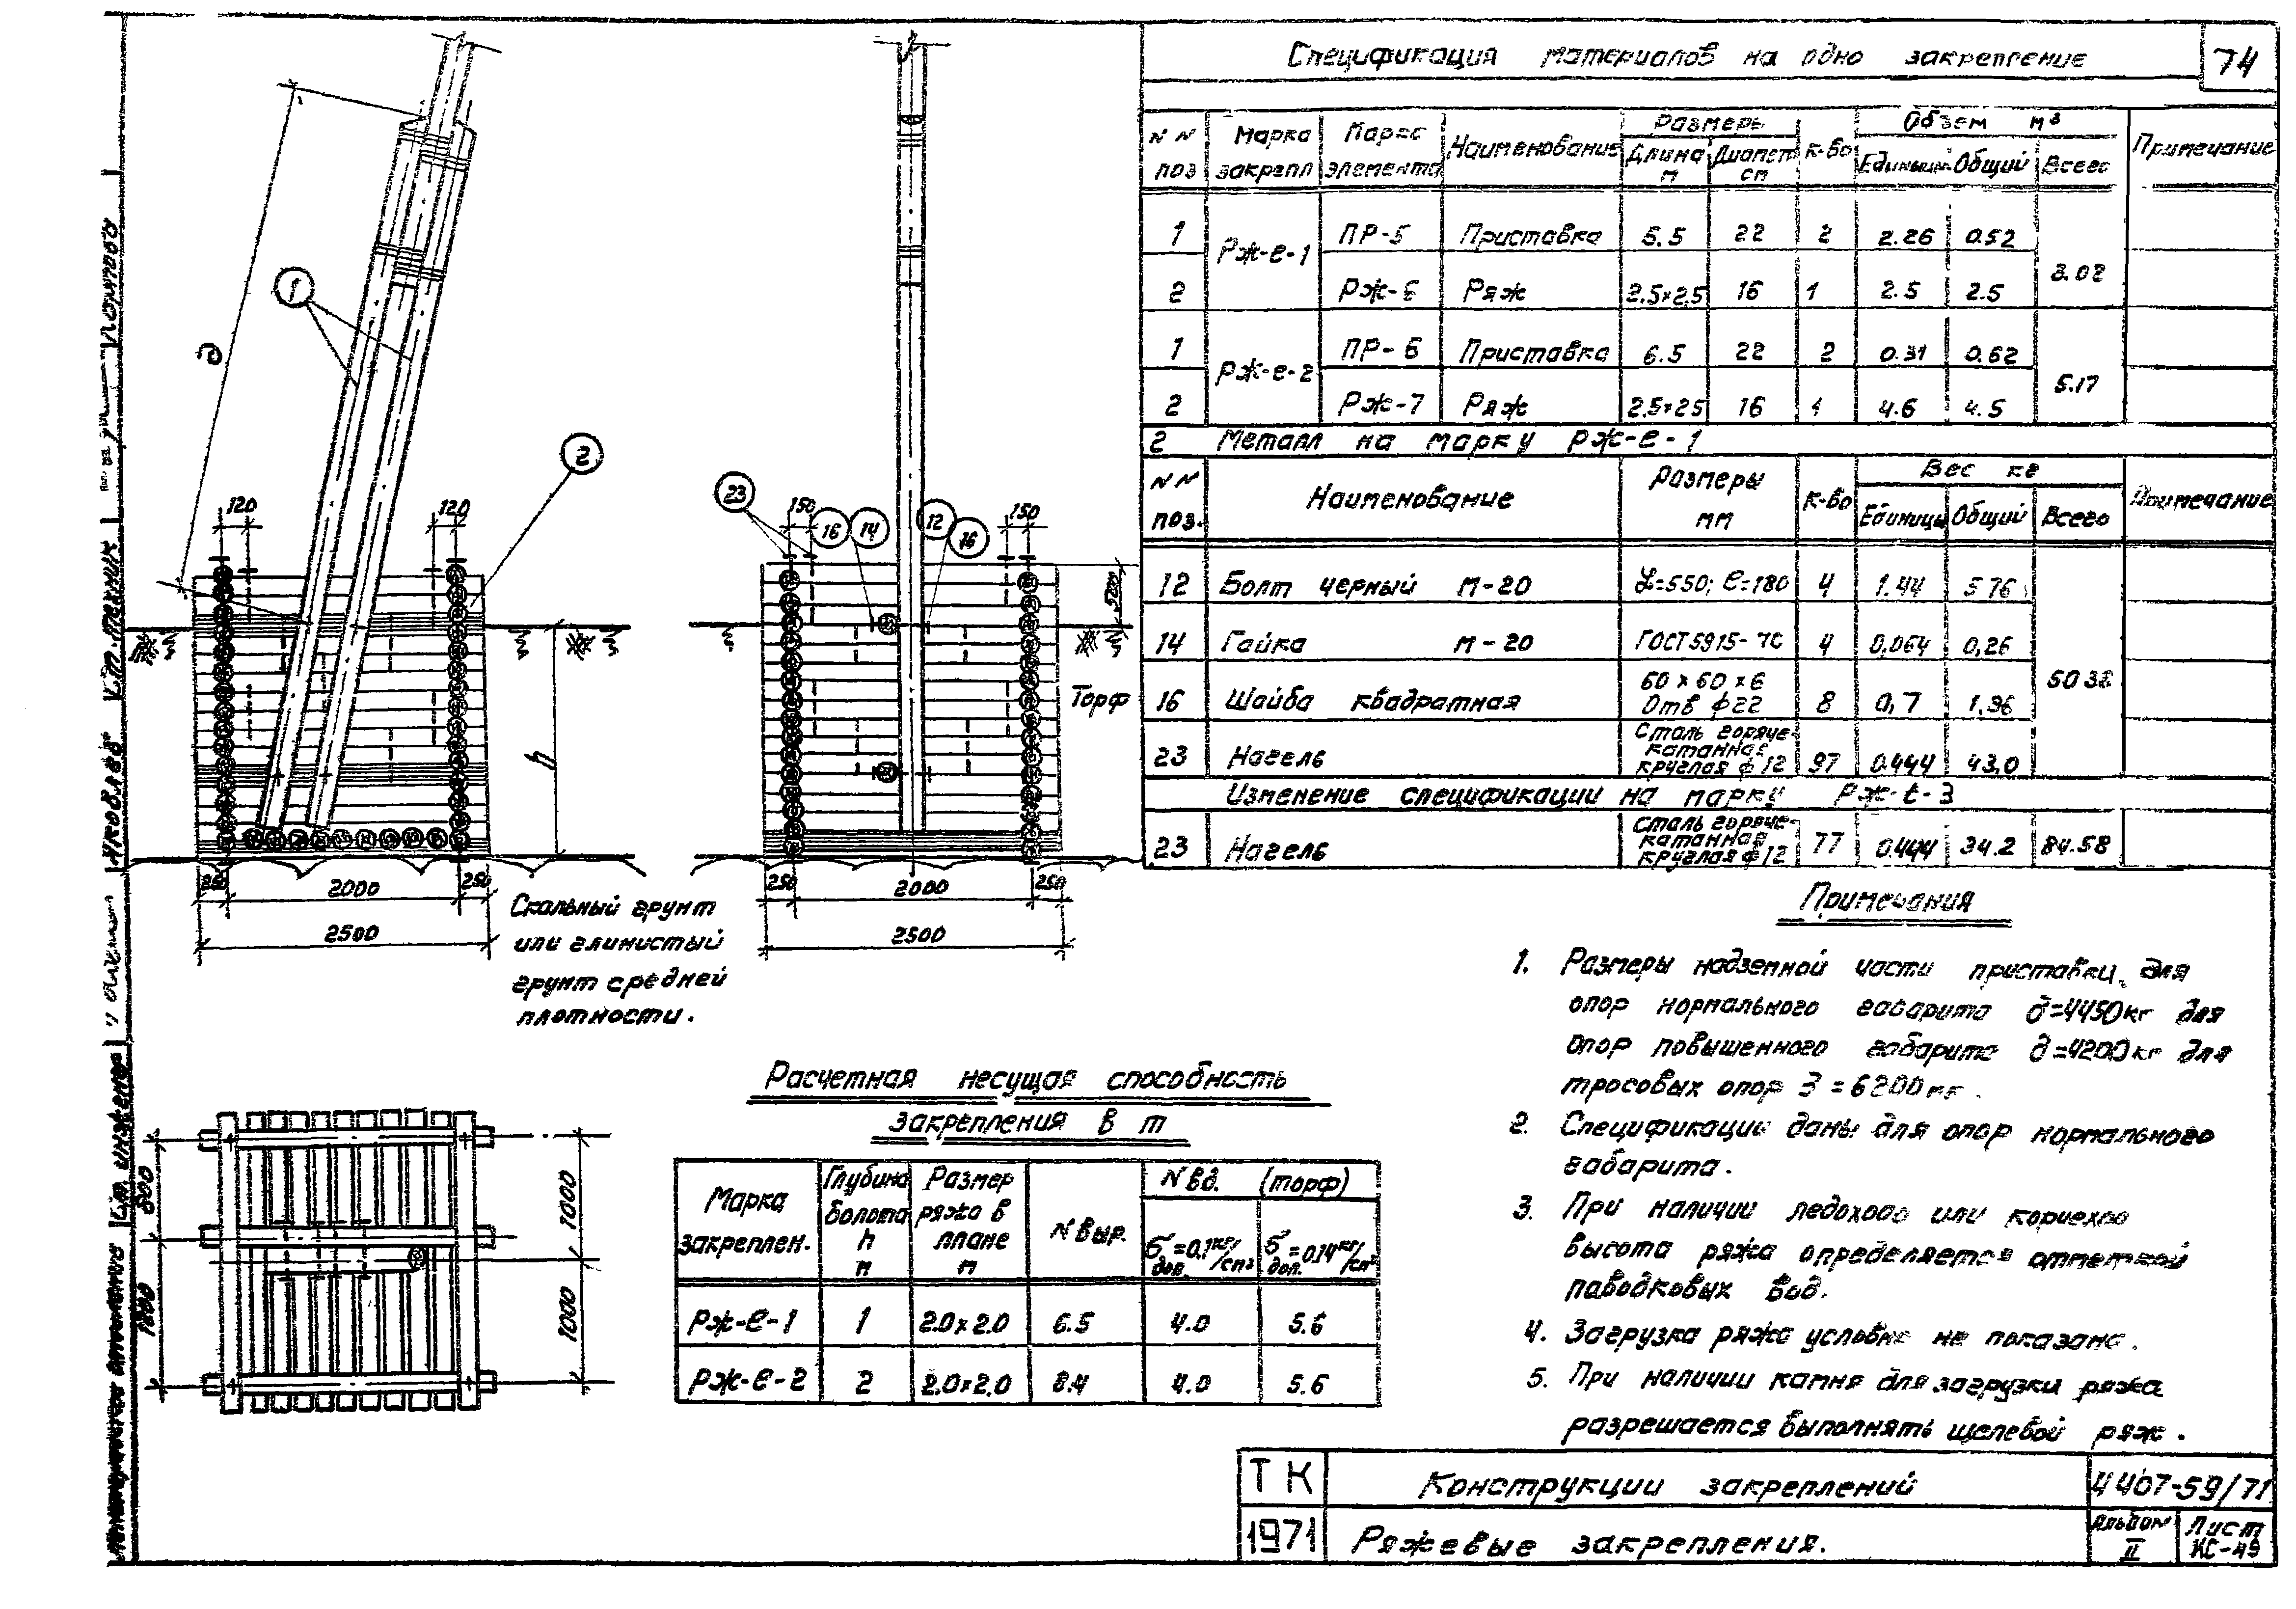 Спецификация материалов на одно закрепление
74
NN поз
Марка закрепл
Марка элемента
Наименование
Размеры
Длина м
Диамет см
К-во
Объем м3
Единицы
Общий
Всего
Примечание
1 Рж-е-1 ПР-5 Приставка 5.5 22 2 2.26 0.52 3.02
2 Рж-6 Ряж 2.5×2.5 16 1 2.5 2.5
1 Рж-е-2 ПР-6 Приставка 6.5 22 2 0.31 0.62 5.17
2 Рж-7 Ряж 2.5×2.5 16 1 4.6 4.5
2 Металл на марку Рж-е-1
NN поз.
Наименование
Размеры мм
К-во
Вес кг
Единицы
Общий
Всего
Примечание
12 Болт черный М-20 L=550; l=180 4 1.44 5.76
14 Гайка М-20 ГОСТ 5915-70 4 0,064 0,26 50.38
16 Шайба квадратная 60×60×6 Отв ф22 8 0,7 1,36
23 Нагель Сталь горяче-катанная круглая ф12 97 0.444 43.0
Изменение спецификации на марку Рж-е-3
23 Нагель Сталь горяче-катанная круглая ф12 77 0.444 34.2 84.58
1
2
120
120
д
h
250
2000
250
2500
23
150
16
14
12
16
150
500
Торф
250
2000
250
2500
Скальный грунт
или глинистый
грунт средней
плотности.
1000
1000
Расчетная несущая способность
закрепления в т
Марка закреплен.
Глубина болота h м
Размер ряжа в плане м
N выр.
N вд. (торф)
б доп. =0.1 кг/см²
б доп. =0.14 кг/см²
Рж-е-1 1 2.0×2.0 6.5 4.0 5.6
Рж-е-2 2 2.0×2.0 8.4 4.0 5.6
Примечания
1. Размеры надземной части приставки, для
опор нормального габарита д=4450кг для
опор повышенного габарита д=4200кг для
тросовых опор З=6200мм.
2. Спецификации даны для опор нормального
габарита.
3. При наличии ледохода или корчехода
высота ряжа определяется отметкой
паводковых вод.
4. Загрузка ряжа условно не показана.
5. При наличии камня для загрузки ряжа
разрешается выполнять щелевой ряж.
ТК
1971
Конструкции закреплений
Ряжевые закрепления.
4407-59/71
Альбом II
Лист КС-49
Ст. инженер
Яковлев
Ст. техник